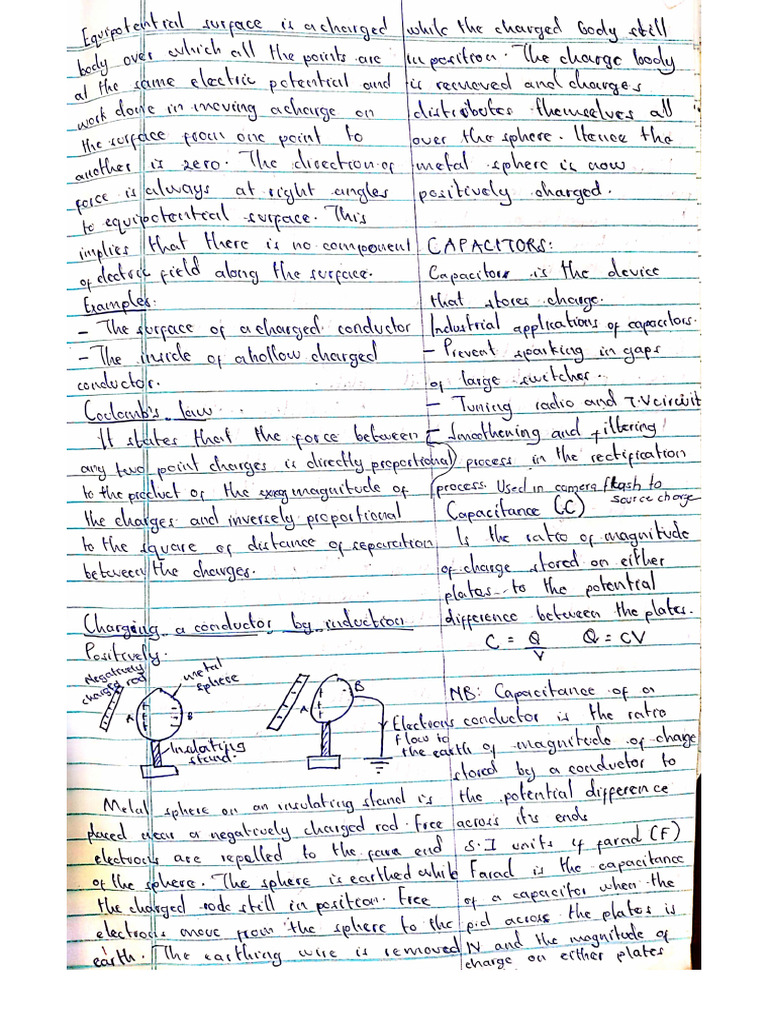 Equipotential surface is a charged
body over which all the points are
at the same electric potential and
work done in moving a charge on
the surface from one point to
another is zero. The direction of
force is always at right angles
to equipotential surface. This
implies that there is no component
of electric field along the surface.
Examples:
- The surface of a charged conductor
- The inside of a hollow charged
conductor.
Coclomb's law.
It states that the force between
any two point charges is directly proportional
to the product of the magnitude of
the charges and inversely proportional
to the square of distance of separation
between the charges.
Charging a conductor by induction
Positively.
negatively
charged rod
metal
sphere
A
B
Insulating
stand.
A
B
Electrons
flow to
the earth
Metal sphere on an insulating stand is
placed near a negatively charged rod. Free
electrons are repelled to the fara end
of the sphere. The sphere is earthed while
the charged rode still in position. Free
electrons move from the sphere to the
earth. The earthing wire is removed
while the charged body still
in position. The charge body
is removed and charges
distributes themselves all
over the sphere. Hence the
metal sphere is now
positively charged.
CAPACITORS:
Capacitors is the device
that stores charge.
Industrial applications of capacitors.
- Prevent sparking in gaps
of large switches.
- Tuning radio and T.V circuit
- Smoothening and filtering
process in the rectification
process. Used in camera flash to
source charge
Capacitance (C)
Is the ratio of magnitude
of charge stored on either
plates to the potential
difference between the plates.
C = Q/V Q = CV
NB: Capacitance of a
conductor is the ratio
of magnitude of charge
stored by a conductor to
the potential difference
across its ends
S.I units if farad (F)
Farad is the capacitance
of a capacitor when the
p.d across the plates is
N and the magnitude of
charge on either plates